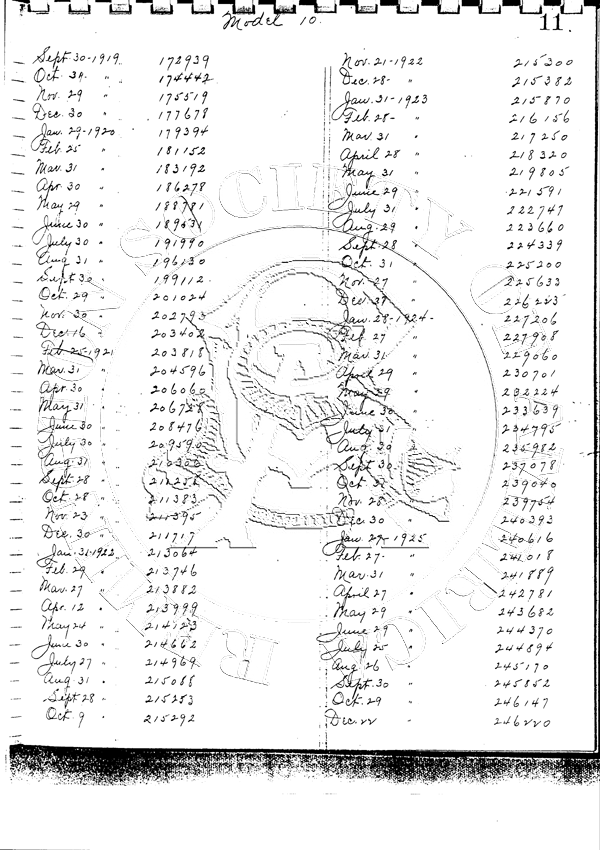 Model 10.
11.
Sept 30-1919 172939
Oct 31 " 174442
Nov. 29 " 175519
Dec. 30 " 177678
Jan. 29-1920 179394
Feb. 25 " 181152
Mar. 31 " 183192
Apr. 30 " 186278
May 29 " 188781
June 30 " 189631
July 30 " 191990
Aug 31 " 196130
Sept 30 " 199112
Oct. 29 " 201024
Nov. 30 " 202793
Dec. 16 " 203402
Feb. 25-1921 203818
Mar. 31 " 204596
Apr. 30 " 206060
May 31 " 206728
June 30 " 208476
July 30 " 209590
Aug 31 "
Sept 28 " 211256
Oct. 28 " 211383
Nov. 23 " 211395
Dec. 30 " 211717
Jan. 31-1922 213064
Feb. 29 " 213746
Mar. 27 " 213882
Apr. 12 " 213999
May 24 " 214123
June 30 " 214662
July 27 " 214969
Aug 31 " 215088
Sept 28 " 215253
Oct. 9 " 215292
Nov. 21-1922 215300
Dec. 28- " 215382
Jan. 31-1923 215870
Feb. 28- " 216156
Mar. 31 " 217250
April 28 " 218320
May 31 " 219805
June 29 " 221591
July 31 " 222747
Aug. 29 " 223660
Sept. 28 " 224339
Oct. 31 " 225200
Nov. 27 " 225633
Dec. 27 " 226223
Jan. 28-1924- 227206
Feb. 27 " 227908
Mar. 31 " 229060
April 29 " 230701
May 29 " 232224
June 30 " 233639
July 31 " 234795
Aug 30 " 235982
Sept 30 " 237078
Oct. 31 " 239040
Nov. 28 " 239754
Dec. 30 " 240393
Jan. 27-1925 240616
Feb. 27- " 241018
Mar. 31 " 241889
April 27 " 242781
May 29 " 243682
June 29 " 244370
July 25 " 244894
Aug 26 " 245170
Sept. 30 " 245852
Oct. 29 " 246147
Dec. 22 " 246220